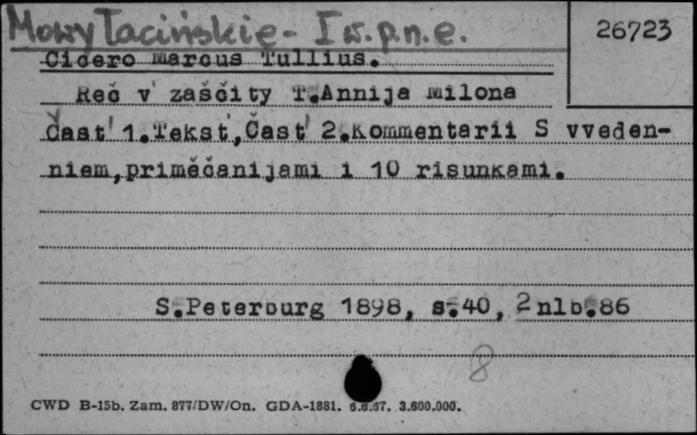 Mowy łacińskie - I w. p.n.e.
26723
Cicero Marcus Tullius.
Reč v zaščity T.Annija Milona
Čast' 1.Tekst',Čast' 2.Kommentarii S vveden-
niem,priměčanijami i 10 risunkami.
S.Peterburg 1898, s.40, 2 nlb.86
8
CWD B-15b. Zam. 877/DW/On. GDA-1881. 6.6.67. 3.600.000.